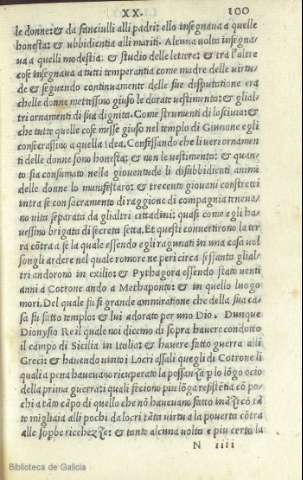 XX. 100
le donne: & da fanciulli alli padri: ello insegnaua a quelle
honesta: & vbbidientia alli mariti. Alcuna uolta insegna-
ua a quelli modestia: & studio delle letere: & tra l'altre
cose insegnaua a tutti temperantia come madre delle uirtu-
de & seguendo continuamente delle sue disputatione era
chelle donne mettessino giuso le dorate uestimenta: & glial-
tri ornamenti di sua dignita. Come strumenti di losciuia: &
che tutte quelle cose messe giuso nel templo di Giunone egli
consecrassino a quella Idea. Confessando che li ueri ornamen
ti delle donne sono honesta: & non le uestimenta: & quan-
to sia consumato nella giouentude li disubbidienti animi
delle donne lo manifestaro: & trecento giouani constretti
intra se con sacramento di raggione di compagnia teneua-
no uita separata da glialtri cittadini: quasi come egli ha-
uessino brigata di secreta setta. Et questi conuertirono la ter
ra cõtra a se la quale essendo egli ragunati in una casa uol
songli ardere nel quale romore ne peri circa sessanta glial-
tri andorono in exilio: & Pythagora essendo stato uenti
anni a Cotrone ando a Methaponto: & in quello luogo
mori. Del quale fu si grande ammiratione che della sua ca-
sa fu fatto templo: & lui adorato per uno Dio. Dunque
Dionysio Re il quale noi dicemo di sopra hauere condotto
il campo di Sicilia in Italia: & hauere fatto guerra alli
Greci: & hauendo uinto i Locri assali quegli di Cotrone li
quali a pena haueuano ricuperato la possanza p lo lõgo ocio
della prima guerra: quali feciono piu lõga resistẽtia cõ po-
chi a tãto cãpo di quello che nõ haueuano fatto inãzi cõ tã
te migliaia alli pochi da locri tãta uirtu a la pouerta cõtra
alle sopbe ricchezze: & tanto alcuna uolta e piu certa la
N iiii
Biblioteca de Galicia